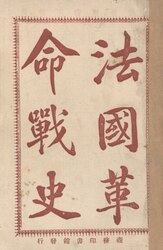 法國革
命戰史
商務印書館發行